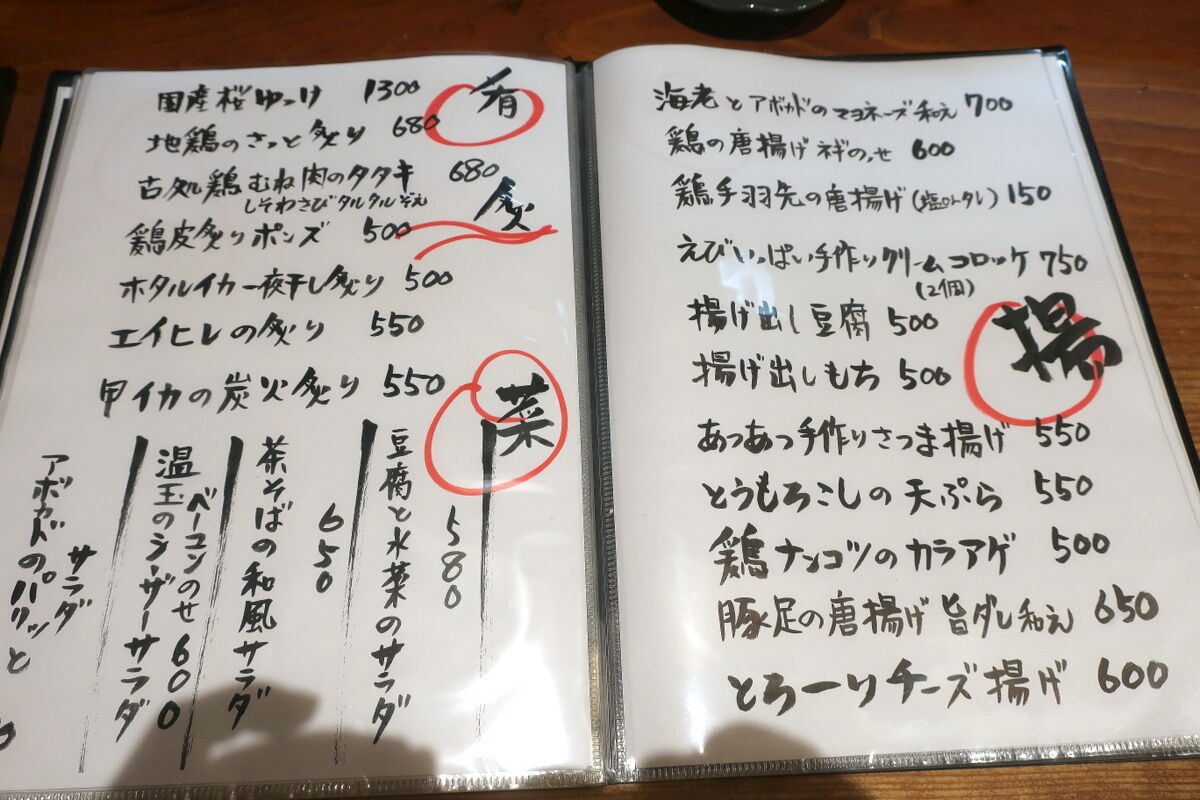 肴
国産桜ゆっけ 1300
地鶏のさっと炙り 680
古処鶏むね肉のタタキ 680
しそわさびタルタルぞえ
炙
鶏皮炙りポンズ 500
ホタルイカ一夜干し炙り 500
エイヒレの炙り 550
甲イカの炭火炙り 550
菜
豆腐と水菜のサラダ 580
茶そばの和風サラダ 650
温玉のシーザーサラダ
ベーコンのせ 600
アボカドのパリッと
サラダ
海老とアボカドのマヨネーズ和え 700
鶏の唐揚げネギのっせ 600
鶏手羽先の唐揚げ(塩orタレ) 150
えびいっぱい手作りクリームコロッケ 750
(2個)
揚げ出し豆腐 500
揚
揚げ出しもち 500
あつあつ手作りさつま揚げ 550
とうもろこしの天ぷら 550
鶏ナンコツのカラアゲ 500
豚足の唐揚げ旨ダレ和え 650
とろーりチーズ揚げ 600